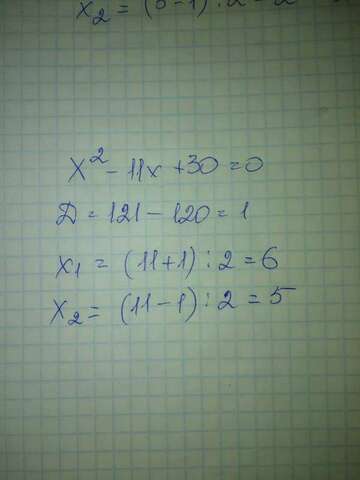 x₂ = (5-1) : 2 = 2
x² - 11x + 30 = 0
Д = 121 - 120 = 1
x₁ = (11+1) : 2 = 6
x₂ = (11-1) : 2 = 5